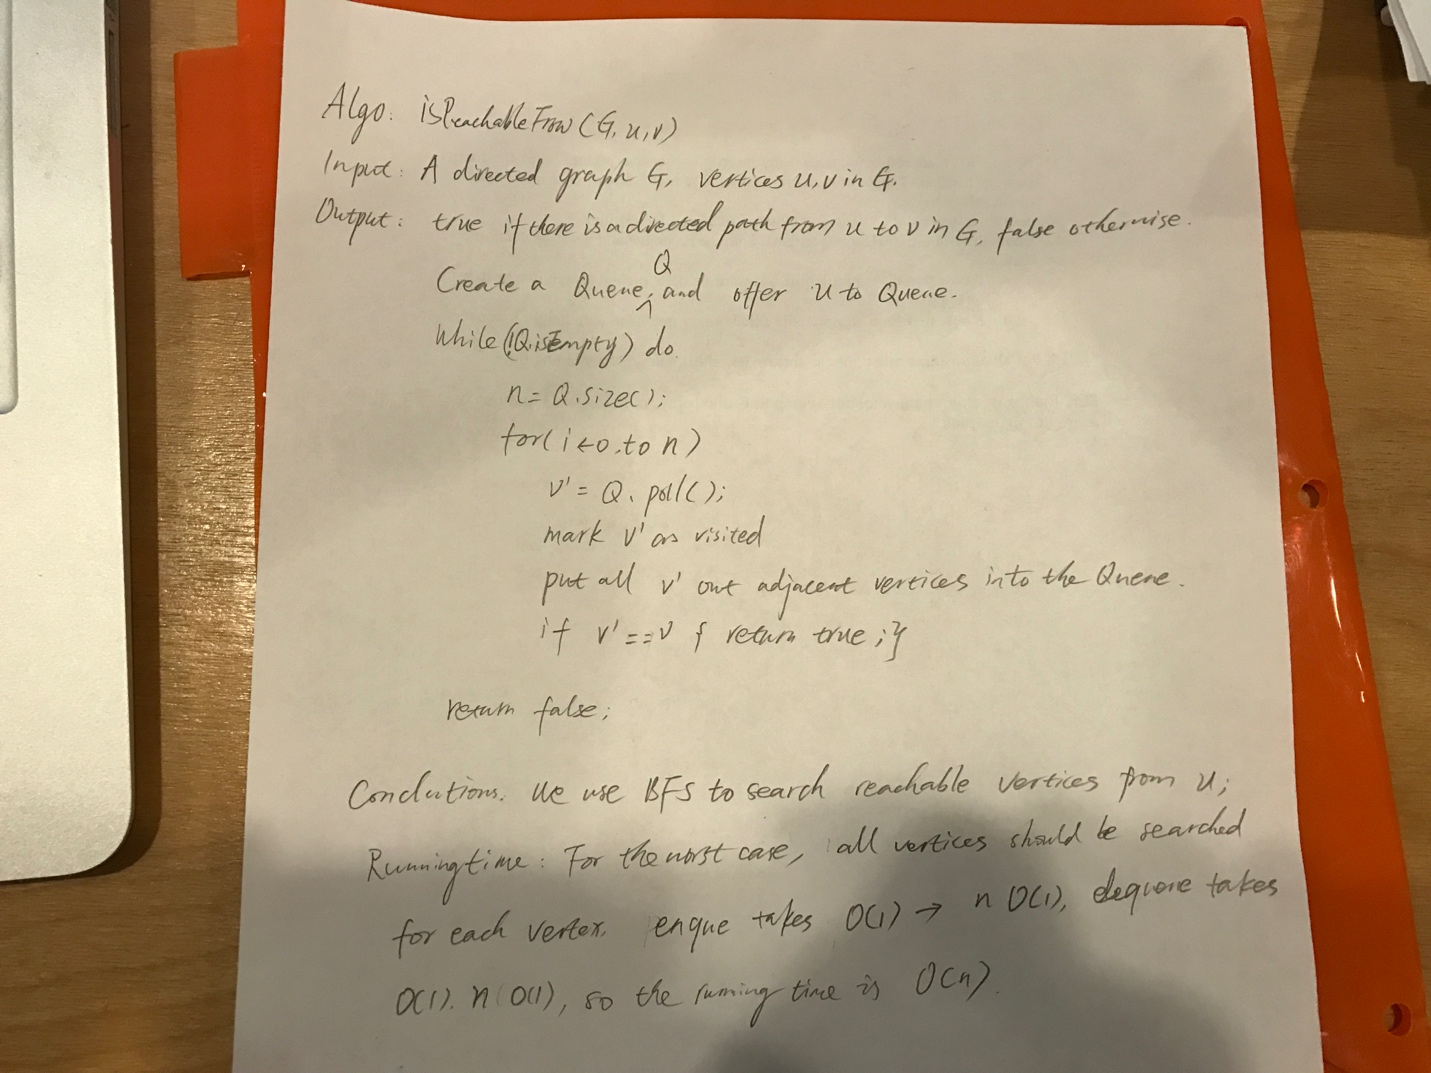 Algo: isReachableFrom (G, u, v)
Input: A directed graph G, vertices u, v in G.
Output: true if there is a directed path from u to v in G, false otherwise.
Q
Create a Queue, and offer u to Queue.
While (!Q.isEmpty) do.
n = Q.size();
for( i ← 0 .to n )
v' = Q. poll();
mark v' as visited
put all v' out adjacent vertices into the Queue.
if v' == v { return true ; }
return false;
Conclutions. We use BFS to search reachable vertices from u;
Running time: For the worst case, all vertices should be searched
for each vertex. enque takes O(1) → n O(1), dequeue takes
O(1). n O(1), so the running time is O(n).